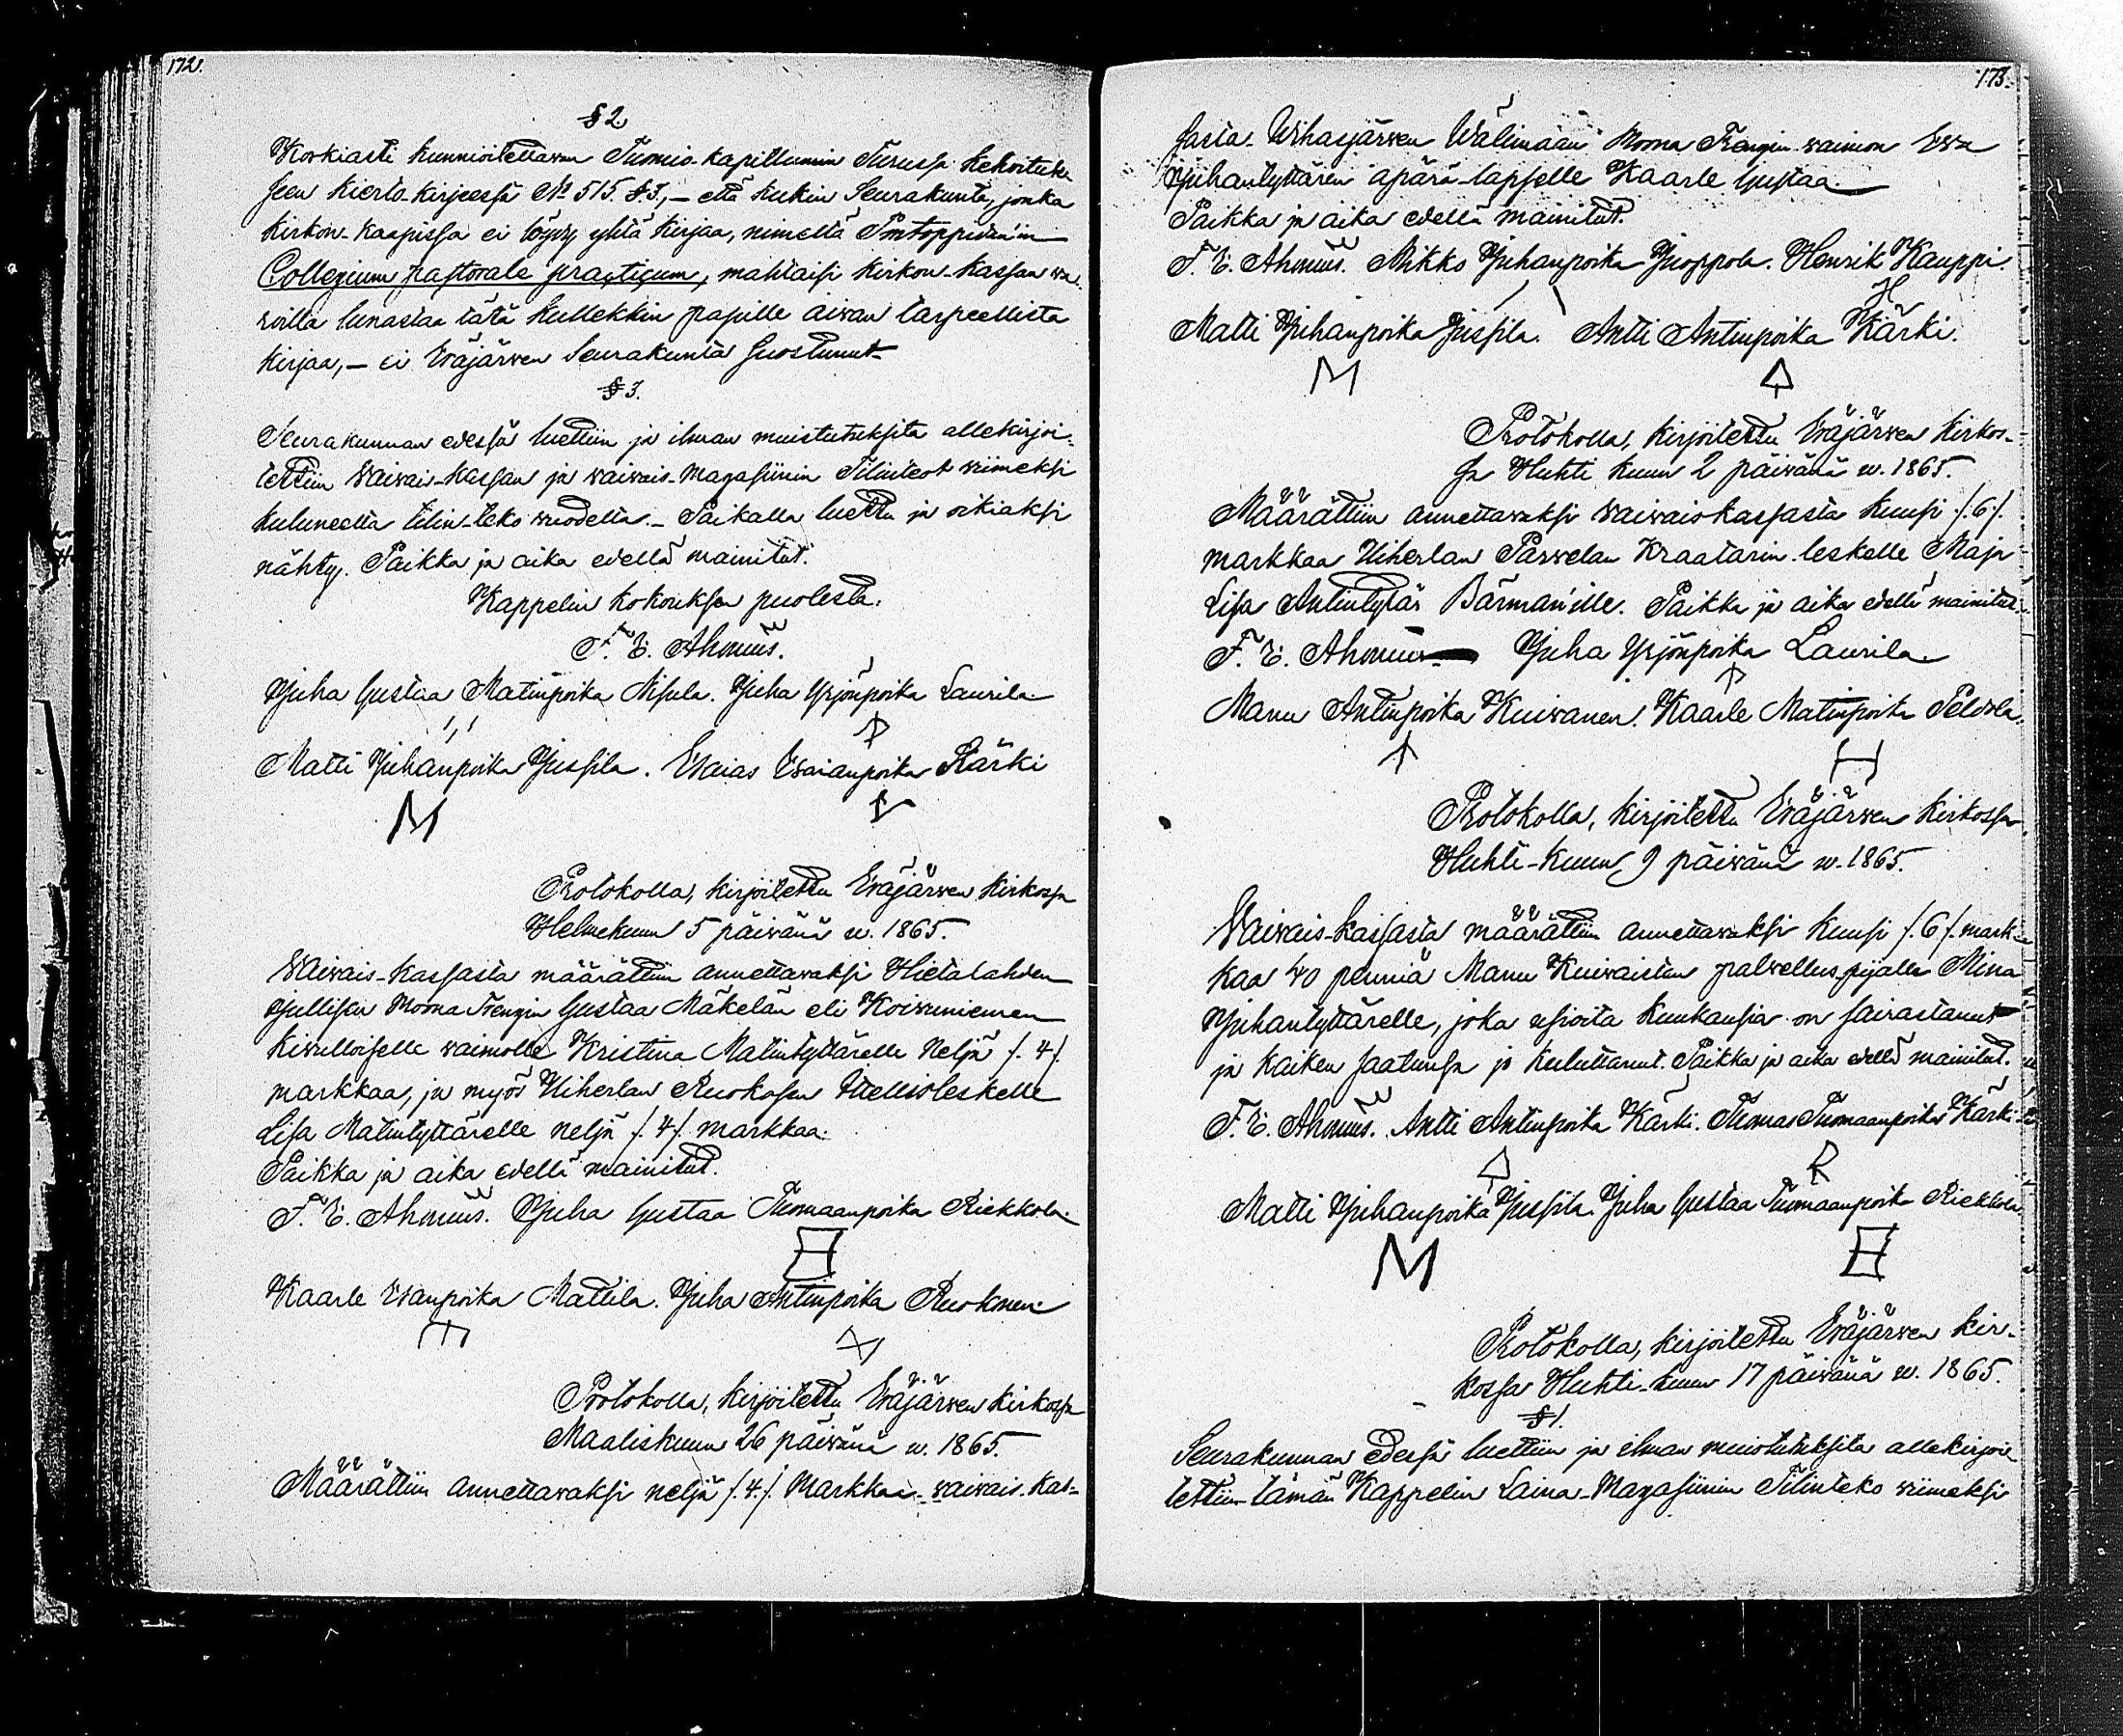 172.
§ 2.
Korkiasti kunnioitettavan Tuomio-kapitlumin Turussa kehoituk-
seen kierto-kirjeessä No 515. §.3., — että kukin Seurakunta, jonka
kirkon-kaapissa ei löydy yhtä kirjaa, nimeltä Pontoppidan'in
Collegium pastorale practicum, mahtaisi kirkon-kassan wa-
roilla lunastaa tätä kullekkin papille aiwan tarpeellista
kirjaa, — ei Eräjärwen Seurakunta suostunut.
§ 3.
Seurakunnan edessä luettiin ja ilman muistutuksita allekirjoi-
tettiin Waiwais-kassan ja waiwais-magasiinin Tilinteot wiimeksi
kuluneelta tilin-teko wuodelta. — Paikalla luettu ja oikiaksi
nähty. Paikka ja aika edellä mainitut.
Kappelin kokouksen puolesta:
F. E. Ahonius.
Juha Gustaa Matinpoika Nisula. Juha Yrjönpoika Laurila
Matti Juhanpoika Jussila. Esaias Esaianpoika Kärki
Protokolla, kirjoitettu Eräjärwen kirkossa
Helmekuun 5 päiwänä w. 1865.
Waiwais-kassasta määrättiin annettawaksi Hietalahden
Moona Trengin Gustaa Mäkelän eli Koiwuniemen
kiwulloiselle waimolle Kristina Matintyttärelle neljä /.4/.
markkaa, ja myös Uiherlan Ruokosen Itellisleskelle
Lisa Matintyttärelle neljä /.4/. markkaa.
Paikka ja aika edellä mainitut.
F. E. Ahonius. Juha Gustaa Tuomaanpoika Riekkola.
Kaarle Esanpoika Mattila. Juha Antinpoika Ruokonen.
Protokolla, kirjoitettu Eräjärwen kirkossa
Maaliskuun 26 päiwänä w. 1865.
Määrättiin annettawaksi neljä /.4./ Markkaa waiwais-kas-
173.
sasta Wihasjärwen Wälimään Moona Trengin waimon Ewa
Juhantyttären äpärä-lapselle Kaarle Gustaa.
Paikka ja aika edellä mainitut.
F. E. Ahonius. Mikko Juhanpoika Juoppola. Henrik Kauppi.
H
Matti Juhanpoika Jussila. Antti Antinpoika Kärki.
M
Protokolla, kirjoitettu Eräjärwen kirkos-
sa Huhti kuun 2 päiwänä w. 1865.
Määrättiin annettawaksi waiwaiskassasta kuusi /.6/.
markkaa Uiherlan Parwelan Kraatarin leskelle Maja
Lisa Antintytär Bärman'ille. Paikka ja aika edellä mainitut.
F. E. Ahonius. Juha Yrjönpoika Laurila.
Manu Antinpoika Kuiwanen. Kaarle Matinpoika Peltola.
H
Protokolla, kirjoitettu Eräjärwen kirkossa
Huhti-kuun 9 päiwänä w. 1865.
Waiwais-kassasta määrättiin annettawaksi kuusi /.6/. mark-
kaa 40 penniä Manu Kuiwaisten palwellus-pijalle Mina
Juhantyttärelle, joka usioita kuukausia on sairastanut
ja kaiken saatunsa jo kuluttanut. Paikka ja aika edellä mainitut.
F. E. Ahonius. Antti Antinpoika Kärki. Tuomas Tuomaanpoika Kärki
Matti Juhanpoika Jussila. Juha Gustaa Tuomaanpoika Riekkola.
M
Protokolla, kirjoitettu Eräjärwen kir-
kossa Huhti-kuun 17 päiwänä w. 1865.
§ 1.
Seurakunnan edessä luettiin ja ilman muistutuksita allekirjoi-
tettiin tämän Kappelin Laina-Magasiinin Tilinteko wiimeksi